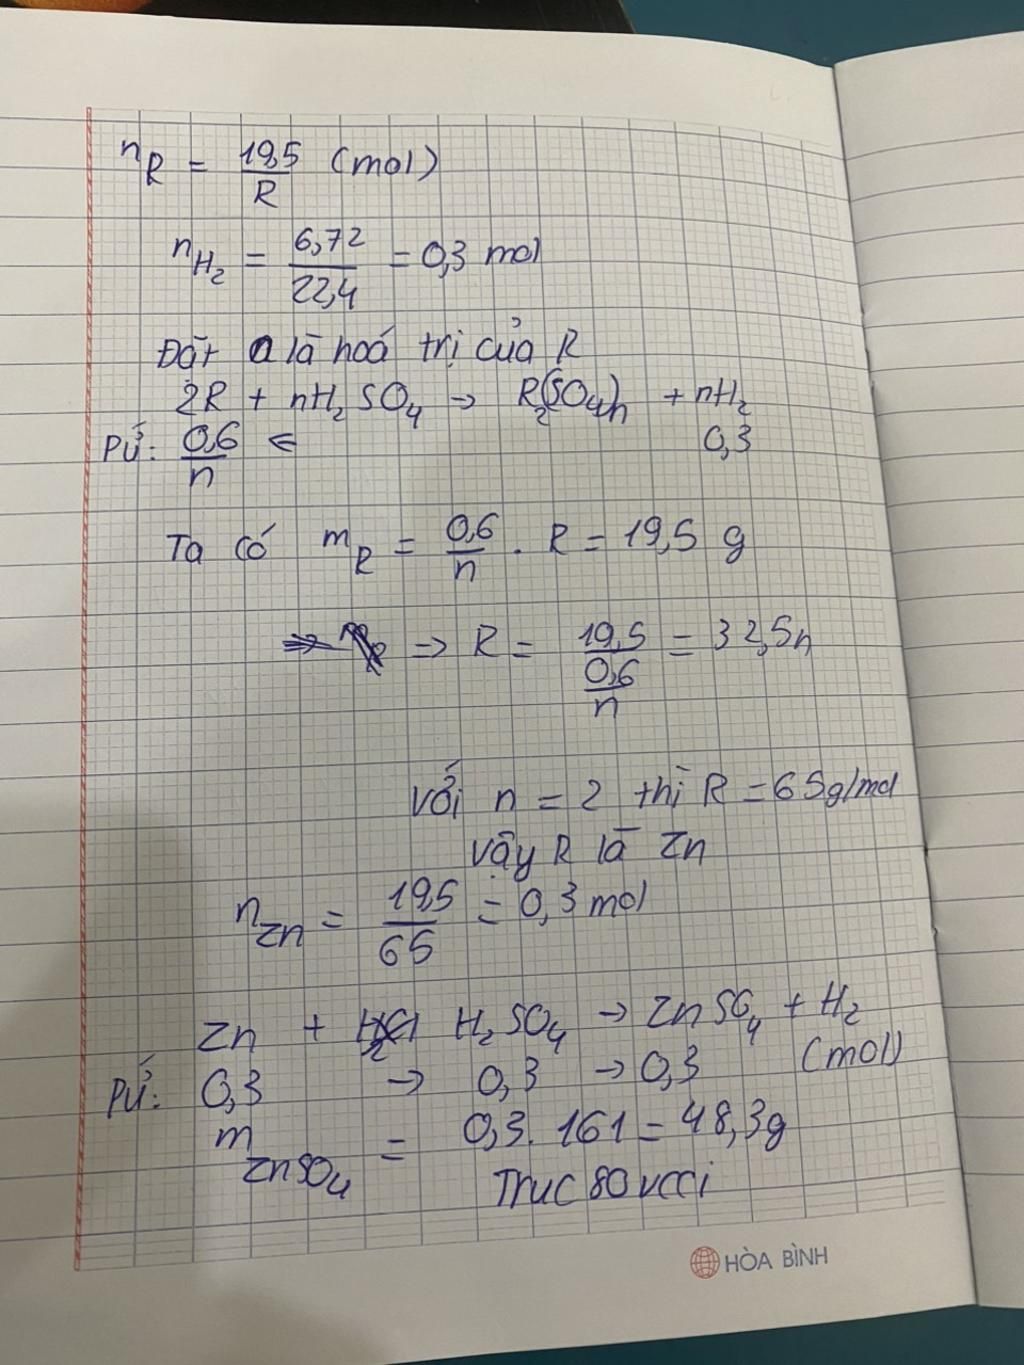 nR = 19,5/R (mol)
nH2 = 6,72/22,4 = 0,3 mol
Đặt a là hoá trị của R
2R + nH2SO4 → R2(SO4)n + nH2
PƯ: 0,6/n ← 0,3
Ta có mR = 0,6/n . R = 19,5 g
⇒ R = 19,5/(0,6/n) = 32,5n
Với n = 2 thì R = 65g/mol
Vậy R là Zn
nZn = 19,5/65 = 0,3 mol
Zn + H2SO4 → ZnSO4 + H2
PƯ: 0,3 → 0,3 → 0,3 (mol)
mZnSO4 = 0,3 . 161 = 48,3g
Truc80vcci
HÒA BÌNH